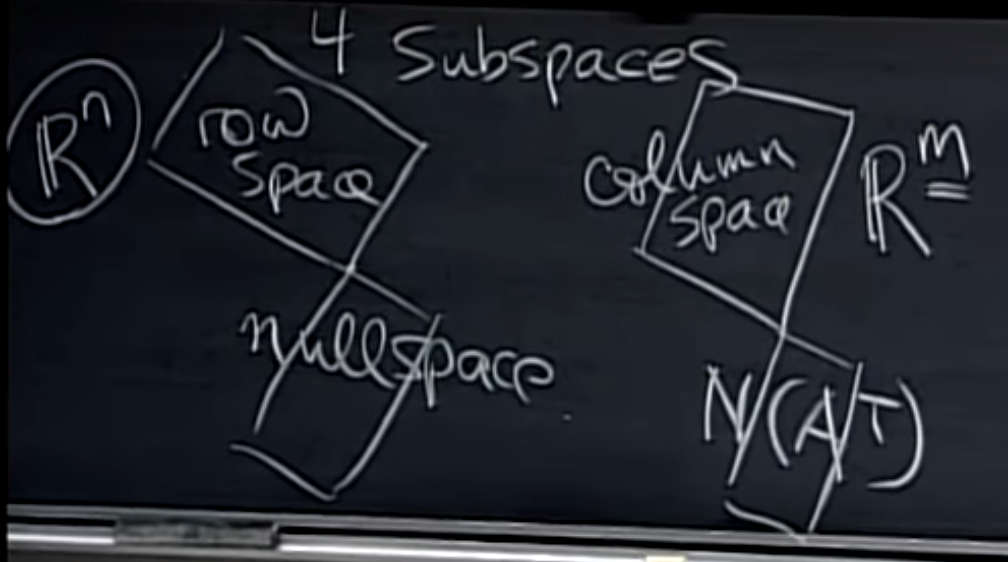 4 Subspaces
Rⁿ
row
space
nullspace
column
space
Rᵐ
N(Aᵀ)